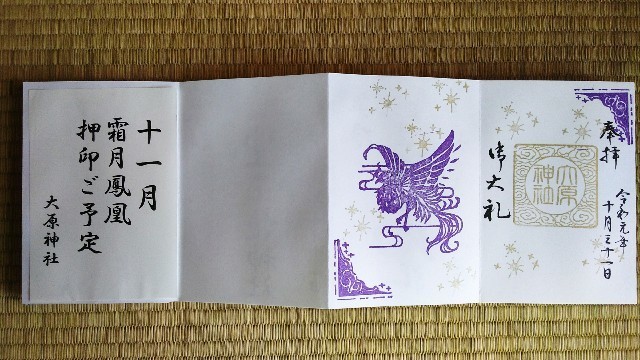 奉拝
大原
神社
御大礼
令和元年
十月三十一日
十一月
霜月鳳凰
押印ご予定
大原神社